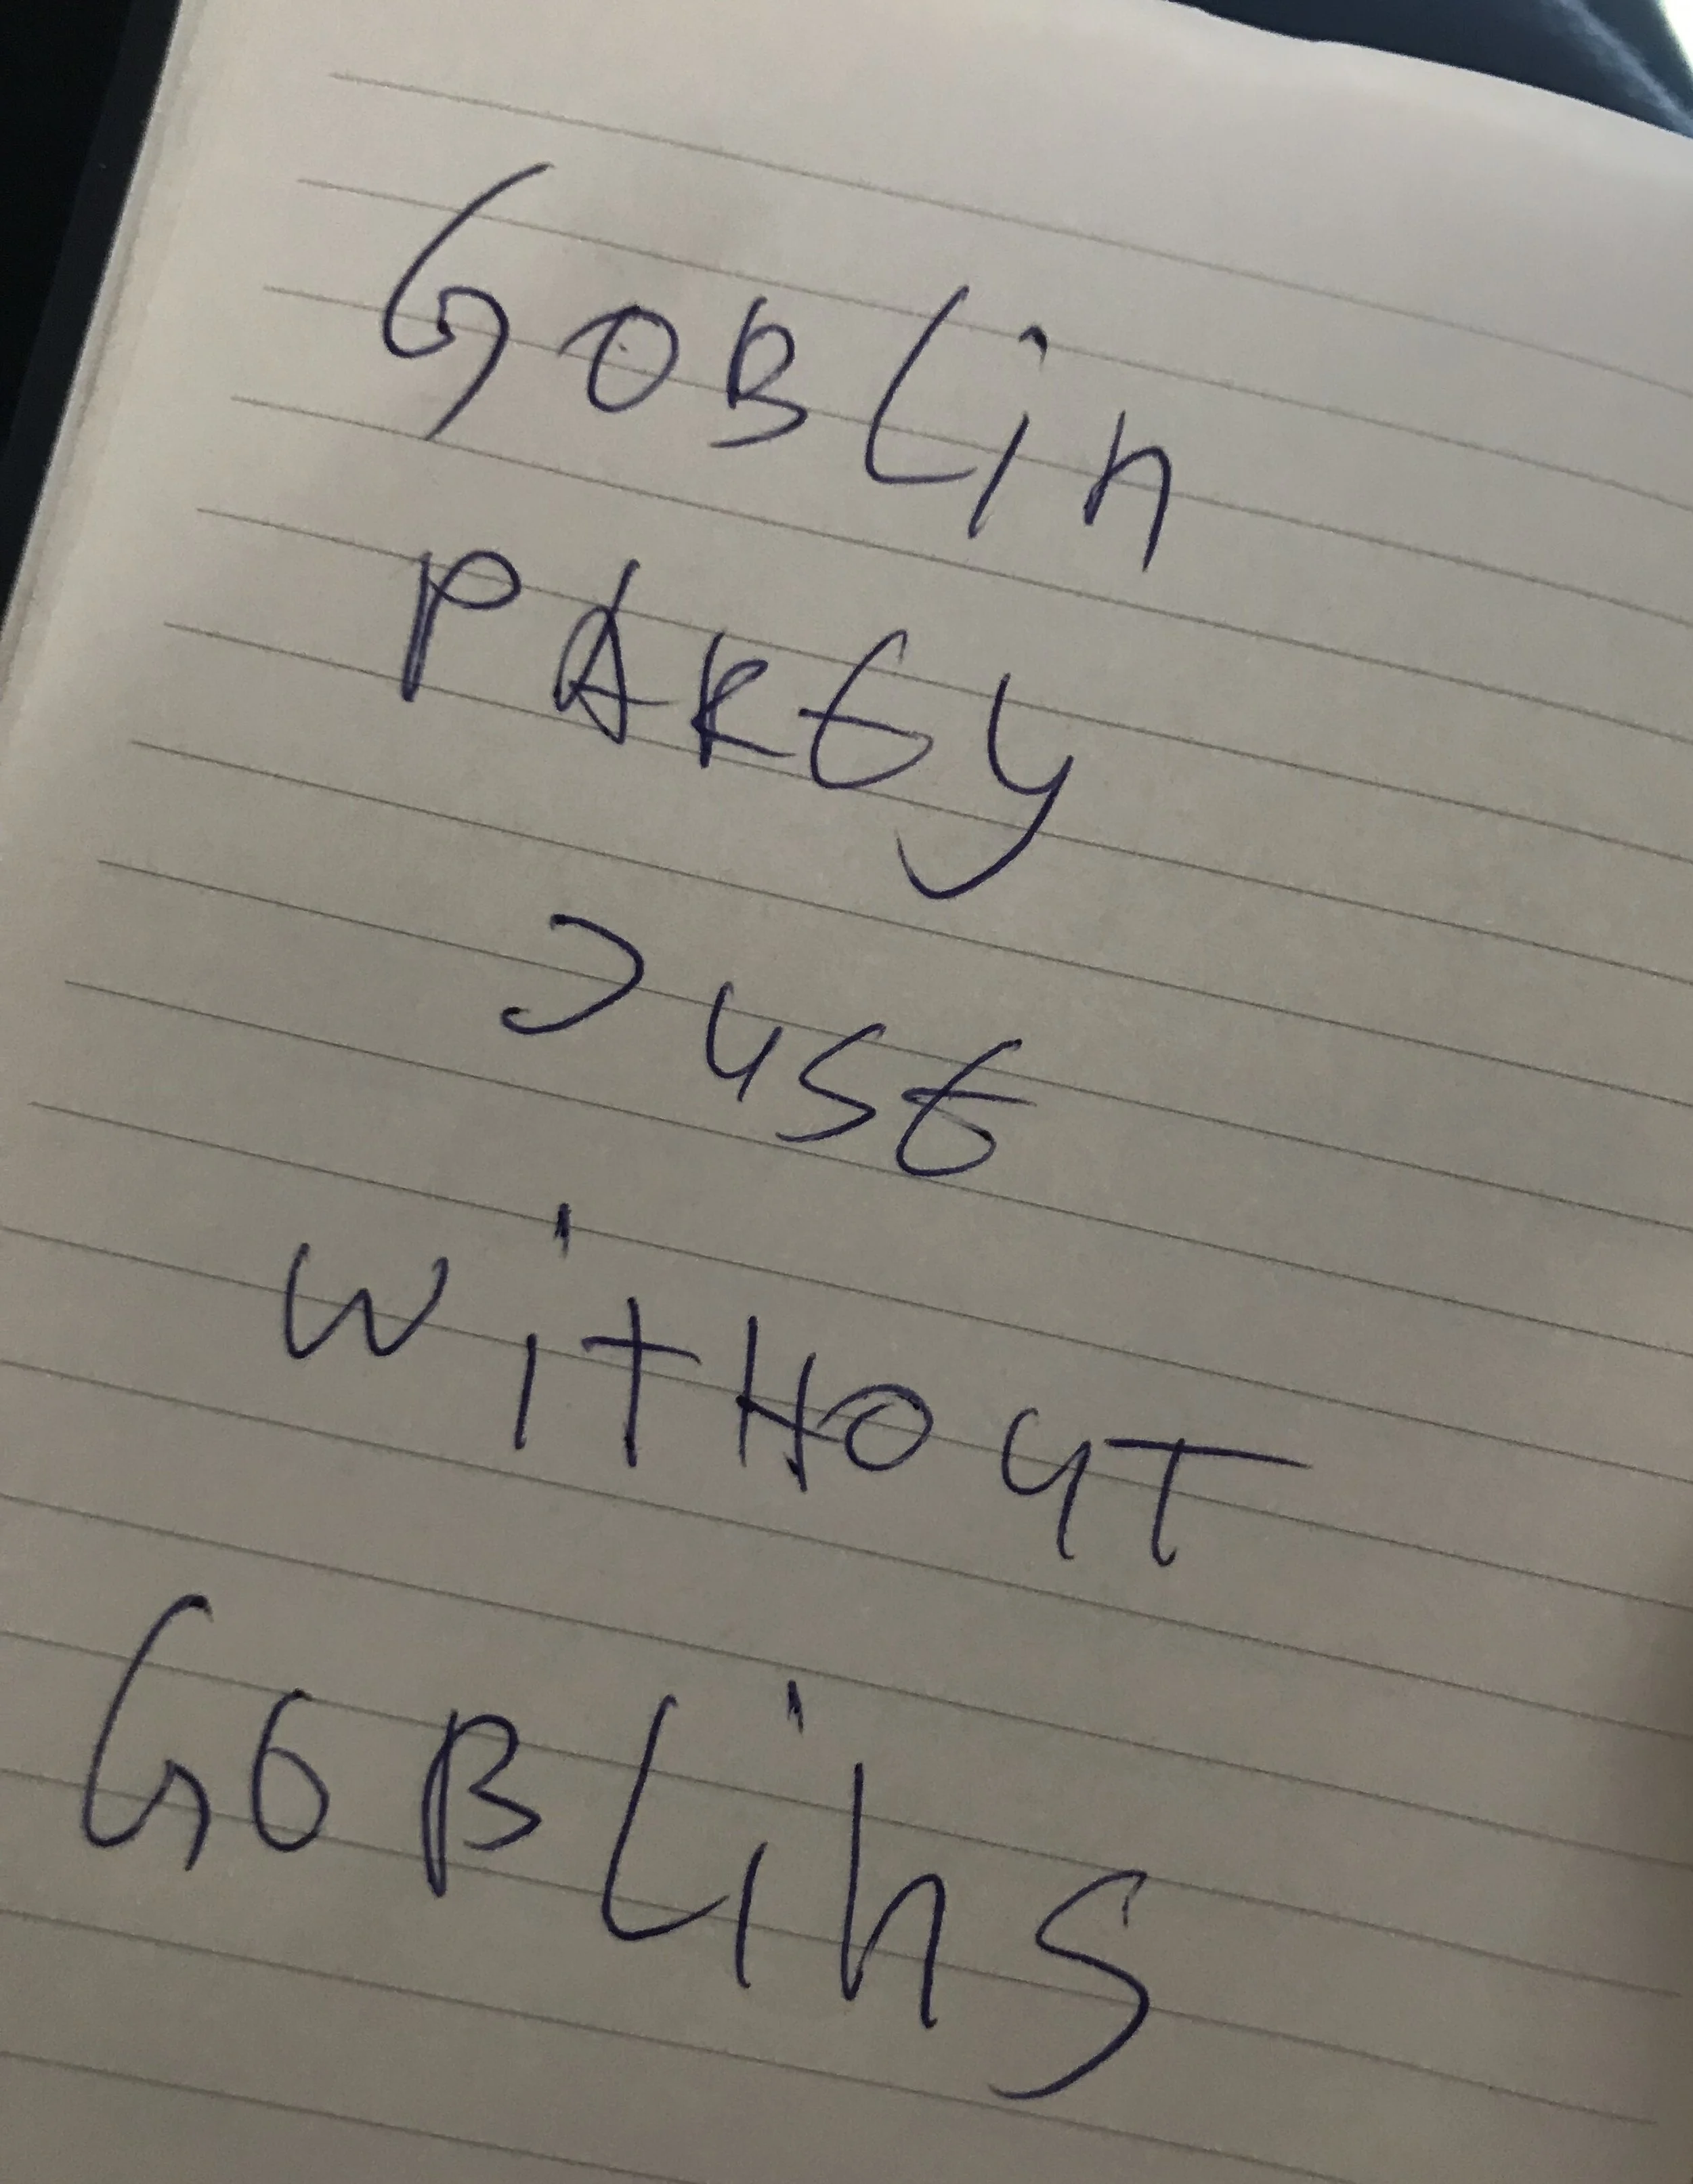 GOBLin
PARty
Just
WiTHOUT
GOBLins